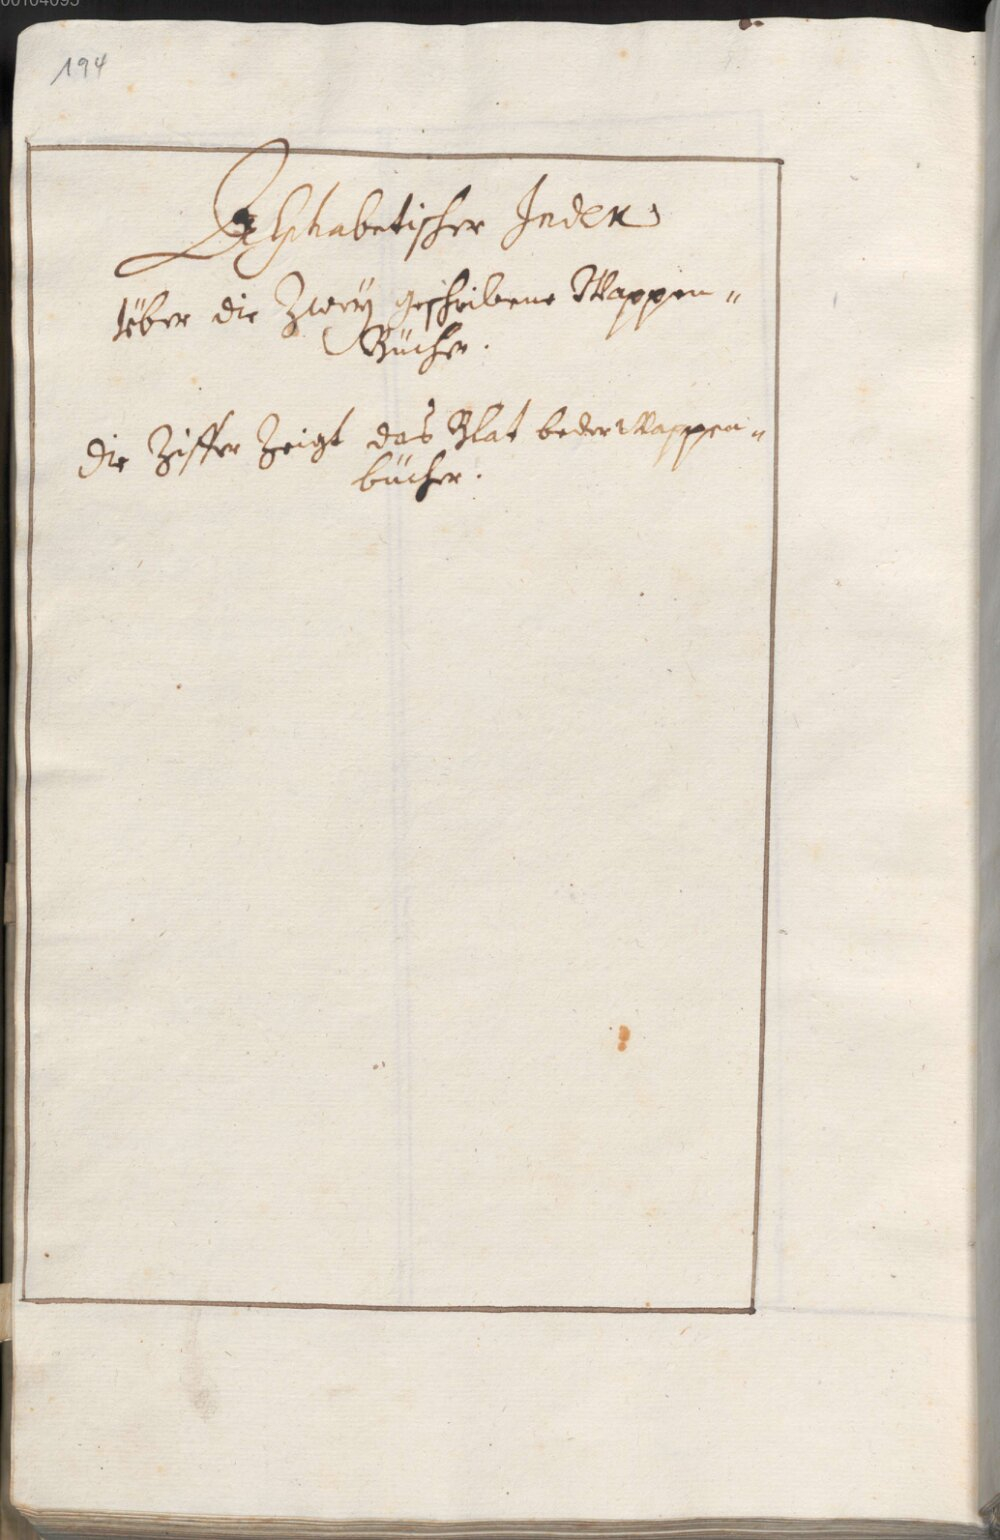 00104095
194
Alphabetischer Index
über die Zweÿ geschribene Wappen„
Bücher.
die Ziffer Zeigt das Blat beder Wappen„
bücher.